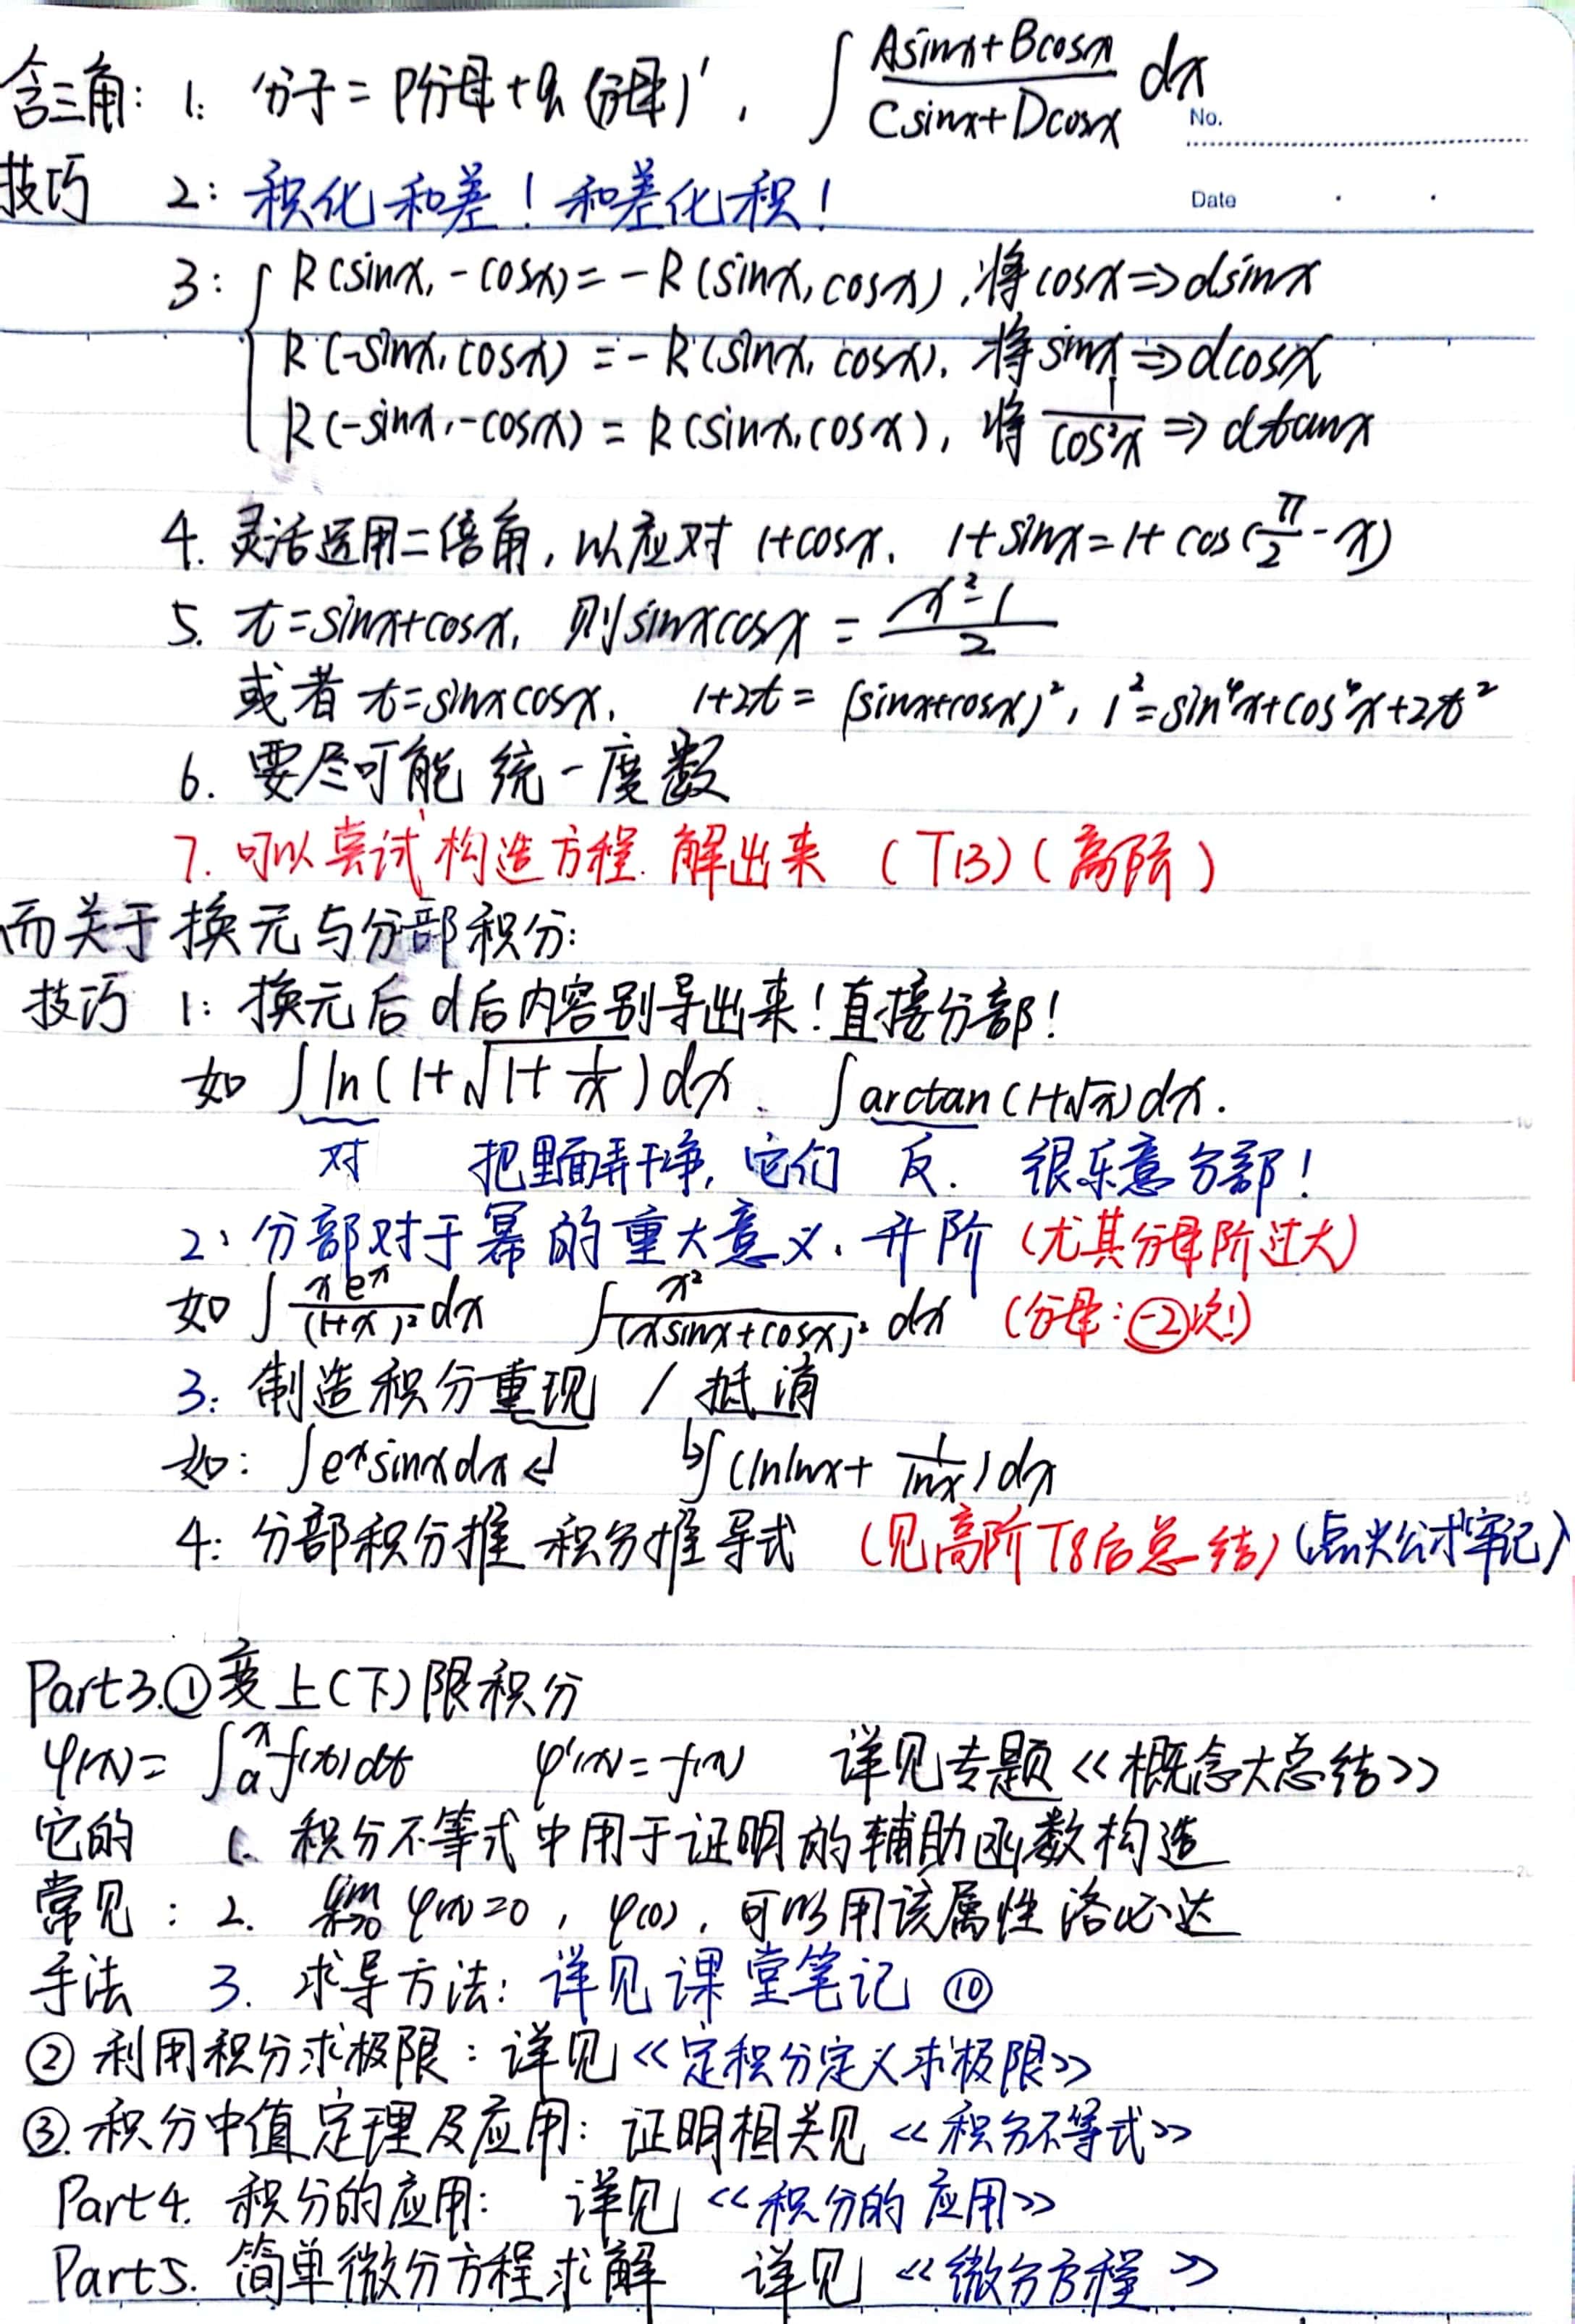 含三角: 1: 分子 = P分母 + Q (分母)', ∫ (Asinx+Bcosx)/(Csinx+Dcosx) dx
No.
技巧 2: 积化和差! 和差化积!
Date
3: { R(sinx, -cosx) = -R(sinx, cosx), 将cosx ⇒ dsinx
R(-sinx, cosx) = -R(sinx, cosx), 将sinx ⇒ dcosx
R(-sinx, -cosx) = R(sinx, cosx), 将 1/cos²x ⇒ dtanx
4. 灵活运用二倍角, 以应对 1+cosx, 1+sinx = 1+cos(π/2 - x)
5. t=sinx+cosx, 则sinxcosx = (x²-1)/2
或者 t=sinxcosx, 1+2t = (sinx+cosx)², 1²=sin⁴x+cos⁴x+2t²
6. 要尽可能 统一度数
7. 可以尝试构造方程. 解出来 (T13)(高阶)
而关于换元与分部积分:
技巧 1: 换元后 d后内容别导出来! 直接分部!
如 ∫ln(1+√(1+1/x))dx. ∫arctan(1+√x)dx.
对 把里面弄干净, 它们 反. 很乐意分部!
2: 分部对于幂的重大意义. 升阶 (尤其分母阶过大)
如 ∫ xeˣ/(1+x)² dx ∫ x²/(xsinx+cosx)² dx (分母: -2次!)
3: 制造积分重现 / 抵消
如: ∫eˣsinxdx ↲ ↳∫(lnlnx + 1/lnx)dx
4: 分部积分推 积分推导式 (见高阶T8后总结)(点火公式牢记)
Part3.①变上(下)限积分
φ(x) = ∫ₐˣ f(t)dt φ'(x) = f(x) 详见专题《概念大总结》
它的 1. 积分不等式中用于证明的辅助函数构造
常见: 2. lim x→0 φ(x)=0, φ(0), 可以用该属性洛必达
手法 3. 求导方法: 详见课堂笔记 ⑩
② 利用积分求极限: 详见《定积分定义求极限》
③. 积分中值定理及应用: 证明相关见《积分不等式》
Part4. 积分的应用: 详见《积分的应用》
Part5. 简单微分方程求解 详见《微分方程》